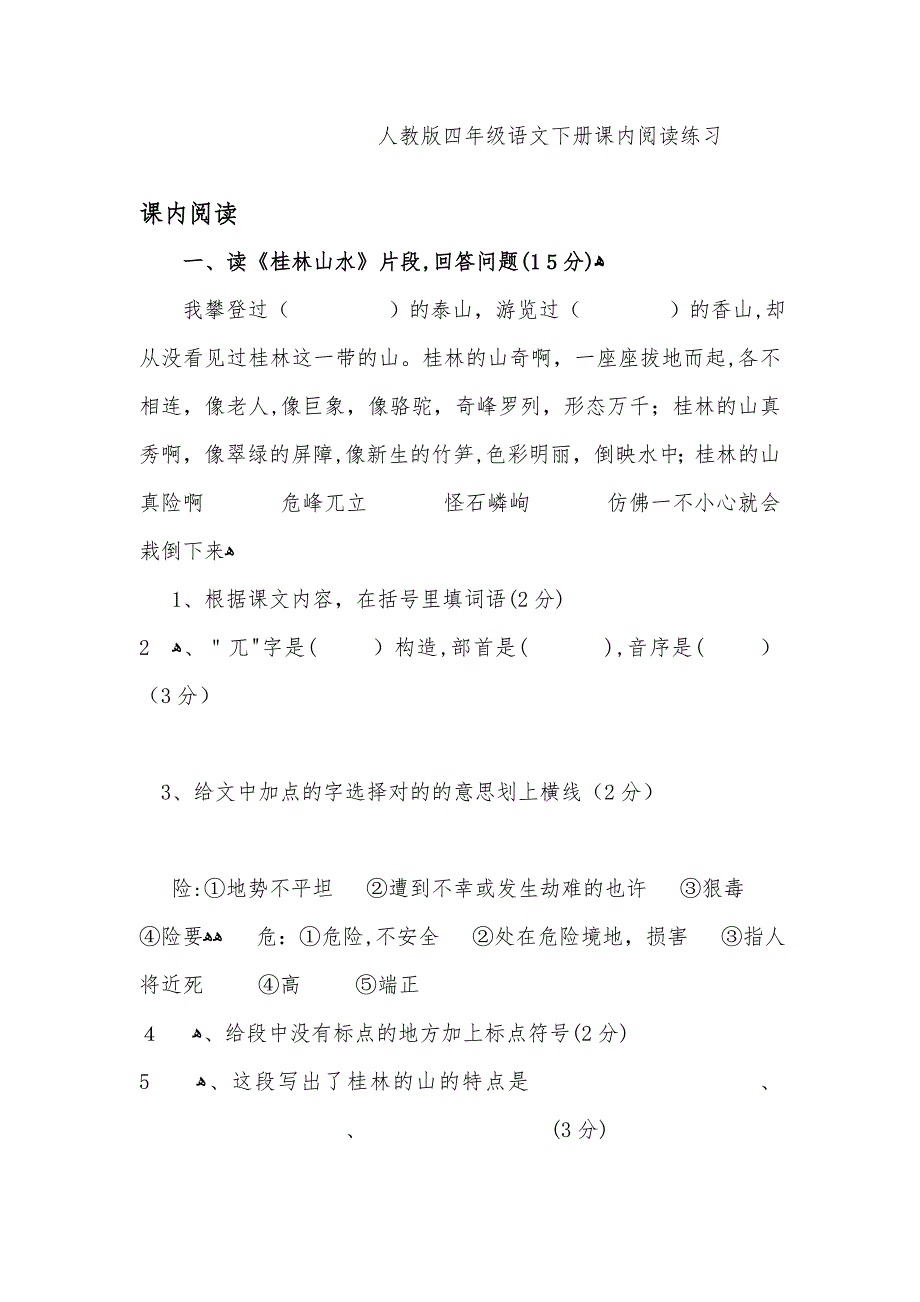 人教版四年级语文下册课内阅读练习
课内阅读
一、读《桂林山水》片段,回答问题(15分)ﻫ
我攀登过（　　　　）的泰山，游览过（　　　　）的香山,却
从没看见过桂林这一带的山。桂林的山奇啊，一座座拔地而起,各不
相连，像老人,像巨象，像骆驼，奇峰罗列，形态万千；桂林的山真
秀啊，像翠绿的屏障,像新生的竹笋,色彩明丽，倒映水中；桂林的山
真险啊　　　危峰兀立　　　怪石嶙峋　　　仿佛一不小心就会
栽倒下来ﻫ
1、根据课文内容，在括号里填词语(2分)
2　ﻫ、"兀"字是(　　）构造,部首是(　　　),音序是(　　）
（3分）
3、给文中加点的字选择对的的意思划上横线（2分）
险:①地势不平坦　②遭到不幸或发生劫难的也许　③狠毒
④险要ﻫﻫ　危：①危险,不安全　②处在危险境地，损害　③指人
将近死　　④高　　⑤端正
4　ﻫ、给段中没有标点的地方加上标点符号(2分)
5　ﻫ、这段写出了桂林的山的特点是　　　　　　　　、
　　　　　　　　、　　　　　　　　(3分)